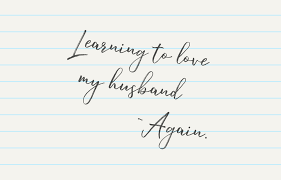 Learning to love
my husband
-Again.